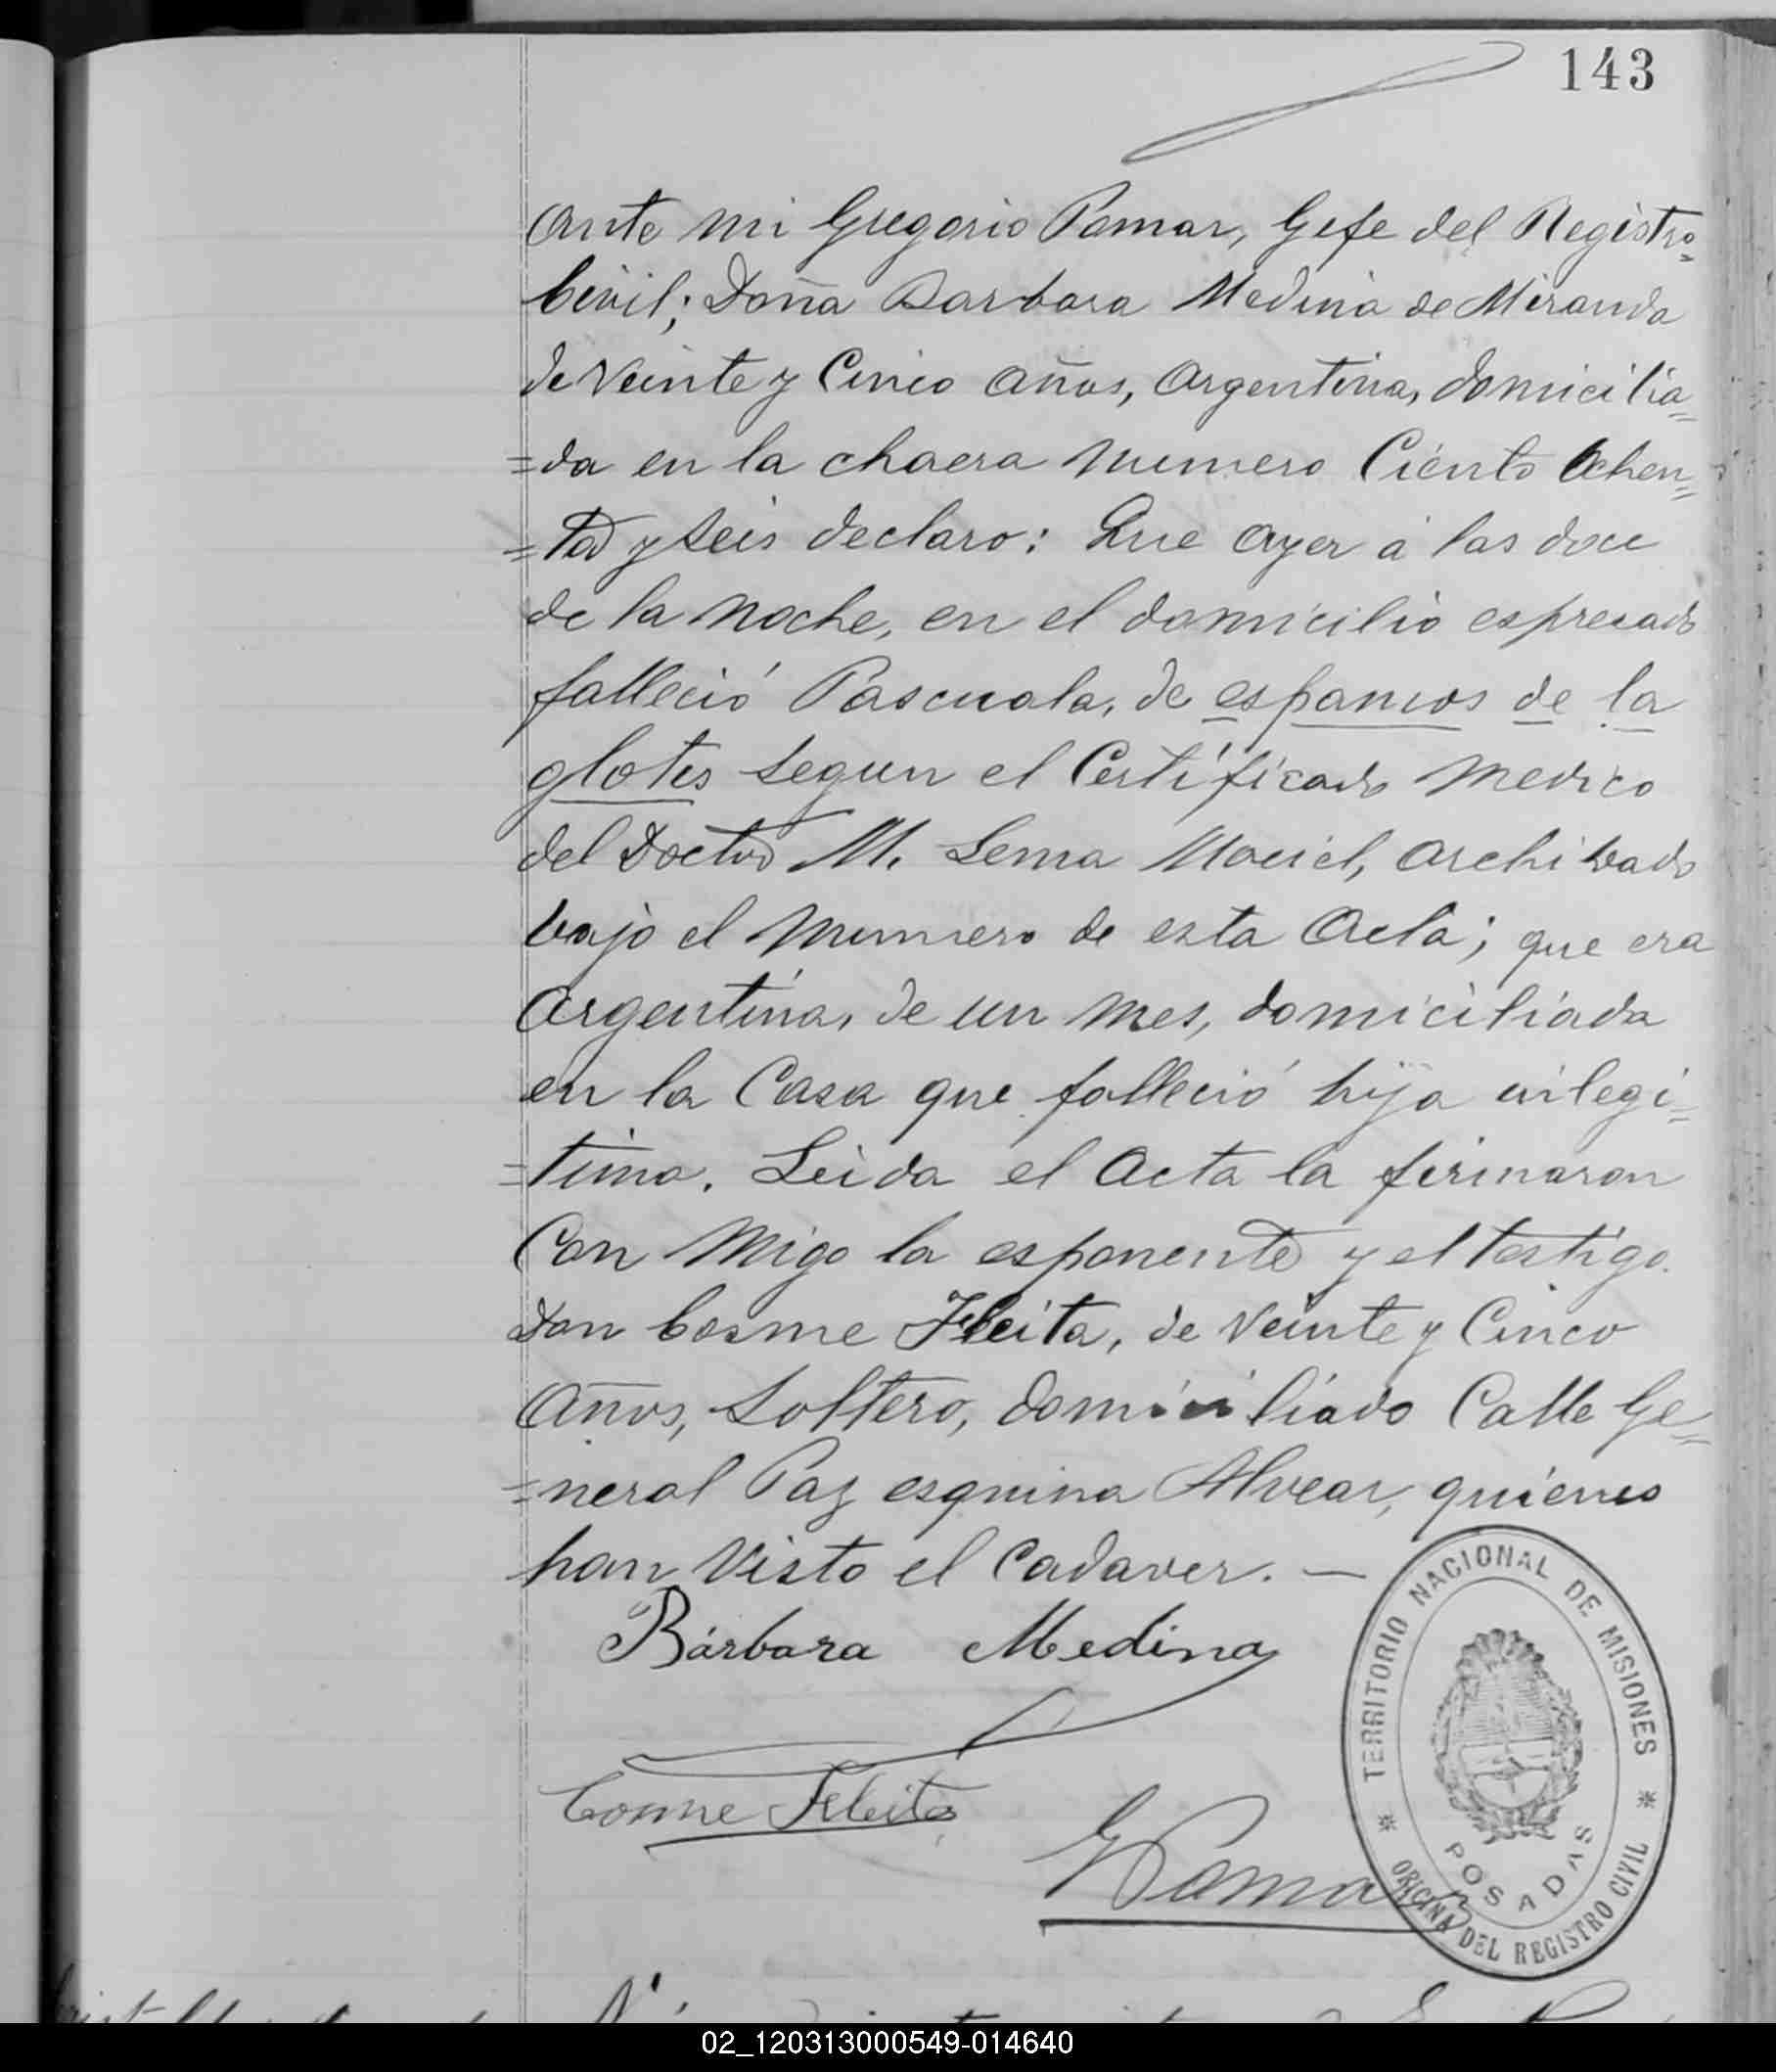 143
Ante mi Gregorio Pomar, Gefe del Registro=
Civil; Doña Barbara Medina de Miranda
de Veinte y Cinco años, Argentina, domicilia=
=da en la chacra numero Ciento Ochen=
=ta y seis declaro: Que ayer á las doce
de la noche, en el domicilio espresado
falleció Pascuala, de espamos de la
glotis segun el Certificado medico
del Doctor M. Lema Maciel, archivado
bajo el numero de esta Acta; que era
Argentina, de un mes, domiciliada
en la Casa que falleció hija ilegi=
=tima. Leida el Acta la firmaron
Con migo la esponente y el testigo
Don Cosme Fleita, de veinte y Cinco
años, Soltero, domiciliado Calle Ge=
=neral Paz esquina Alvear, quienes
han visto el Cadaver. —
Bárbara Medina
Cosme Fleitas
G Pomar
TERRITORIO NACIONAL DE MISIONES
POSADAS
OFICINA DEL REGISTRO CIVIL
02_120313000549-014640